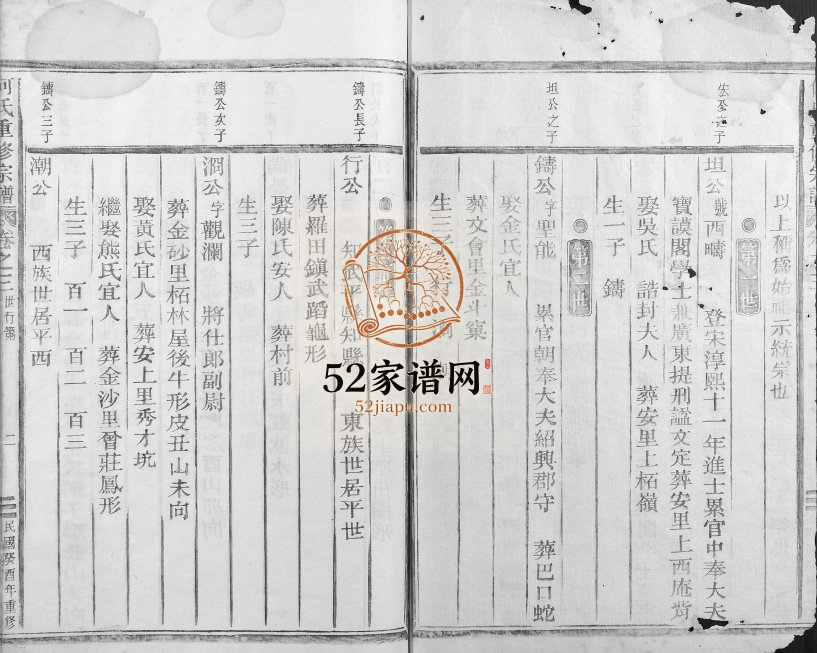 以上稱爲始祖示統宗也
宏公之子
坦公號西疇 登宋淳熙十一年進士累官中奉大夫
寶謨閣學士兼廣東提刑謚文定葬安里上西庵
娶吳氏 誥封夫人 葬安里上柘嶺
生一子 鑄
坦公之子
鑄公字聖能 累官朝奉大夫紹興郡守 葬巴口蛇
娶金氏宜人
葬文會里金斗窠
生三子 行
鑄公長子
行公 知 平縣知縣 東族世居平世
葬羅田鎭武蹈龜形
娶陳氏安人 葬村前
生三子
鑄公次子
澗公字觀瀾 將仕郎副尉
葬金砂里柘林屋後牛形皮丑山未向
娶黃氏宜人 葬安上里秀才坑
繼娶熊氏宜人 葬金沙里曾莊鳳形
生三子 百一 百二 百三
鑄公三子
潮公 西族世居平西
何氏重修宗譜
卷之三 世行第
二
民國癸酉年重修
52家谱网
52jiapu.com